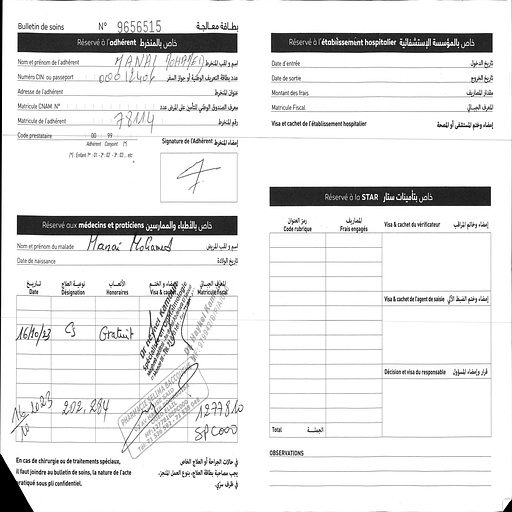 Bulletin de soins N° 9656515 بطاقة معالجة
Réservé à l'adhérent خاص بالمنخرط
Nom et prénom de l'adhérent MANAI MOHAMED اسم و لقب المنخرط
Numéro CIN ou passeport عدد بطاقة التعريف الوطنية أو جواز السفر
Adresse de l'adhérent عنوان المنخرط
Matricule CNAM N° معرف الصندوق الوطني للتأمين على المرض عدد
Matricule de l'adhérent 78114 رقم المنخرط
Code prestataire 00 99
Adhérent Conjoint (*)
(*) : Enfant 1er : 01 - 2e : 02 - 3e : 03 ... etc
Signature de l'Adhérent إمضاء المنخرط
Réservé aux médecins et praticiens خاص بالأطباء والممارسين
Nom et prénom du malade Manai Mohamed اسم و لقب المريض
Date de naissance تاريخ الولادة
تاريخ نوعية العلاج الأتعاب الإمضاء و الختم المعرف الجبائي
Date Désignation Honoraires Visa & cachet Matricule Fiscal
16/10/23 Cs Gratuit
202,284 1277810
SPC000
PHARMACIE SELIMA BACCOUCHE
En cas de chirurgie ou de traitements spéciaux,
il faut joindre au bulletin de soins, la nature de l'acte
pratiqué sous pli confidentiel.
في حالات الجراحة أو العلاج الخاص
يجب مصاحبة بطاقة العلاج، بنوع العمل المنجز،
في ظرف سري.
Réservé à l'établissement hospitalier خاص بالمؤسسة الإستشفائية
Date d'entrée تاريخ الدخول
Date de sortie تاريخ الخروج
Montant des frais مقدار المصاريف
Matricule Fiscal المعرف الجبائي
Visa et cachet de l'établissement hospitalier إمضاء وختم المستشفى أو المصحة
Réservé à la STAR خاص بتأمينات ستار
رمز العنوان المصاريف
Code rubrique Frais engagés
Visa & cachet du vérificateur إمضاء وختم المراقب
Visa & cachet de l'agent de saisie إمضاء وختم الضبط الآلي
Décision et visa du responsable قرار وإمضاء المسؤول
Total الجملة
OBSERVATIONS